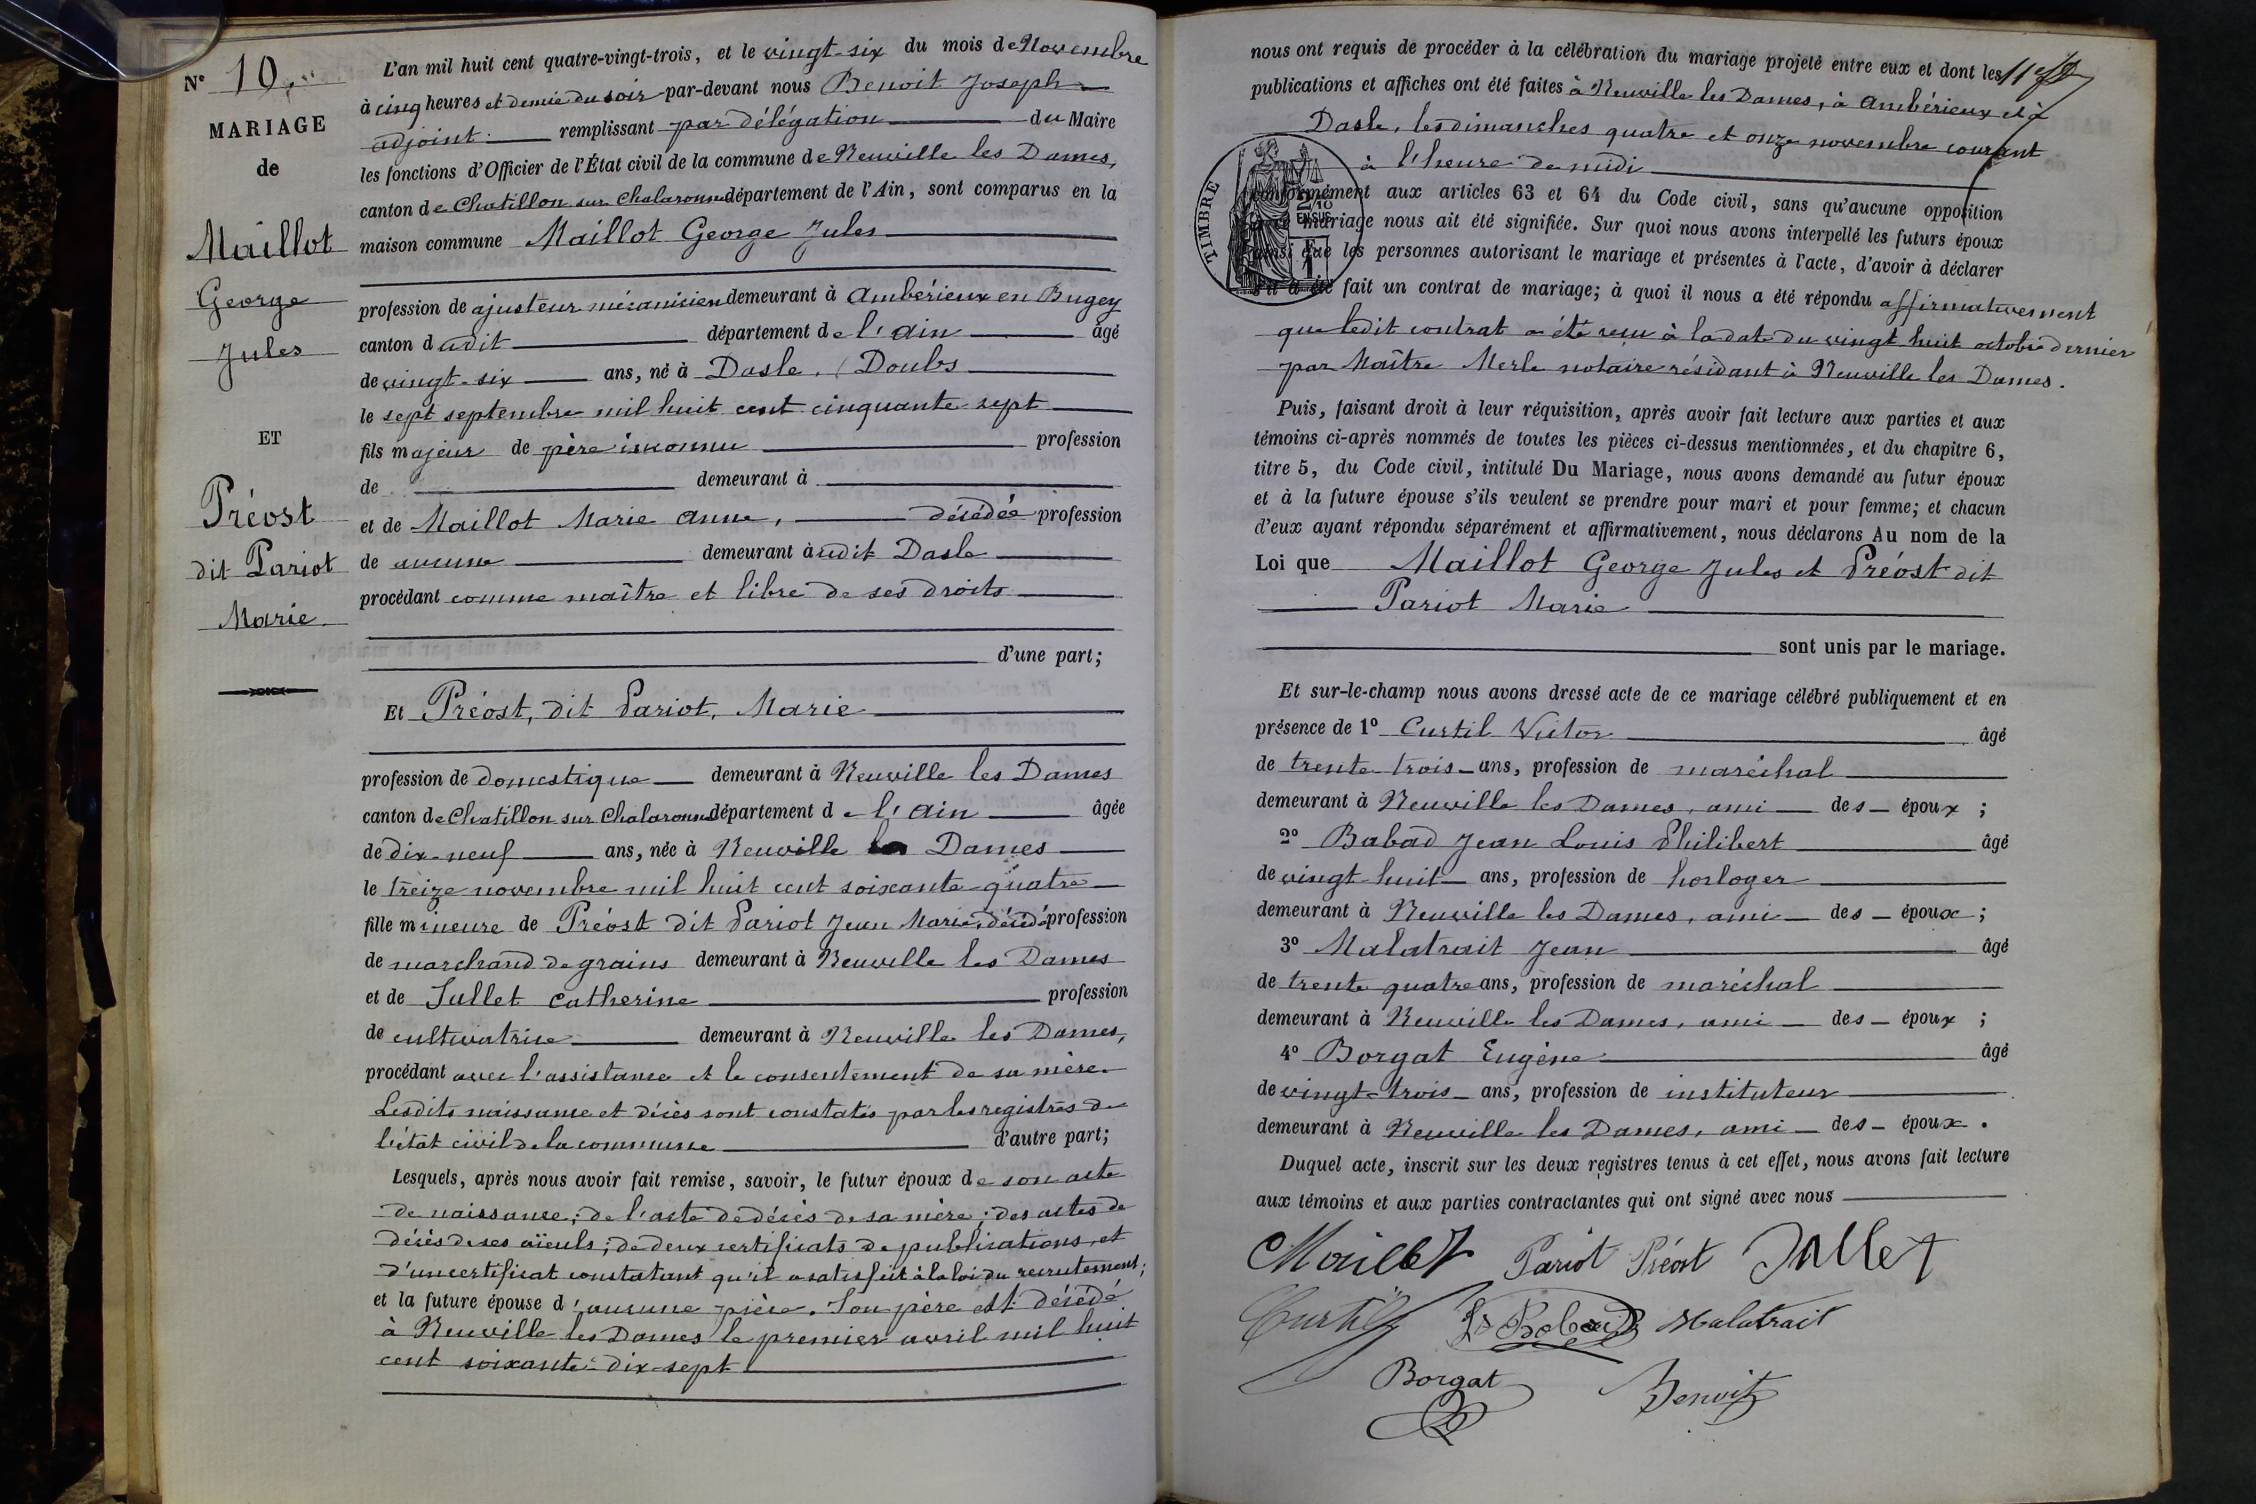 N° 10.
MARIAGE
de
Maillot
George
Jules
ET
Préost
dit Pariot
Marie.
L'an mil huit cent quatre-vingt-trois, et le vingt-six du mois de Novembre
à cinq heures et demie du soir par-devant nous Benoit Joseph
adjoint remplissant par délégation du Maire
les fonctions d'Officier de l'État civil de la commune de Neuville les Dames,
canton de Chatillon sur Chalaronne département de l'Ain, sont comparus en la
maison commune Maillot George Jules
profession de ajusteur mécanicien demeurant à Ambérieux en Bugey
canton dudit département de l'Ain âgé
de vingt-six ans, né à Dasle, (Doubs
le sept septembre mil huit cent cinquante sept
fils majeur de père inconnu profession
de demeurant à
et de Maillot Marie Anne, décédée profession
de aucune demeurant à udit Dasle
procédant comme maître et libre de ses droits
d'une part;
Et Préost, dit Pariot, Marie
profession de domestique demeurant à Neuville les Dames
canton de Chatillon sur Chalaronne département de l'Ain âgée
de dix-neuf ans, née à Neuville les Dames
le treize novembre mil huit cent soixante-quatre
fille mineure de Préost dit Pariot Jean Marie, décédé profession
de marchand de grains demeurant à Neuville les Dames
et de Jullet Catherine profession
de cultivatrice demeurant à Neuville les Dames,
procédant avec l'assistance et le consentement de sa mère.
Lesdits naissance et décès sont constatés par les registres de
l'état civil de la commune d'autre part;
Lesquels, après nous avoir fait remise, savoir, le futur époux de son acte
de naissance; de l'acte de décès de sa mère; des actes de
décès de ses aïeuls; de deux certificats de publications, et
d'un certificat constatant qu'il a satisfait à la loi du recrutement;
et la future épouse d'aucune pièce. Son père est décédé
à Neuville les Dames le premier avril mil huit
cent soixante-dix-sept
nous ont requis de procéder à la célébration du mariage projeté entre eux et dont les
publications et affiches ont été faites à Neuville les Dames, à Ambérieux et à
Dasle, les dimanches quatre et onze novembre courant
à l'heure de midi
conformément aux articles 63 et 64 du Code civil, sans qu'aucune opposition
à ce mariage nous ait été signifiée. Sur quoi nous avons interpellé les futurs époux
ainsi que les personnes autorisant le mariage et présentes à l'acte, d'avoir à déclarer
s'il a été fait un contrat de mariage; à quoi il nous a été répondu affirmativement
que ledit contrat a été reçu à la date du vingt huit octobre dernier
par Maître Merle notaire résidant à Neuville les Dames.
TIMBRE
2/10
EN SUS
Puis, faisant droit à leur réquisition, après avoir fait lecture aux parties et aux
témoins ci-après nommés de toutes les pièces ci-dessus mentionnées, et du chapitre 6,
titre 5, du Code civil, intitulé Du Mariage, nous avons demandé au futur époux
et à la future épouse s'ils veulent se prendre pour mari et pour femme; et chacun
d'eux ayant répondu séparément et affirmativement, nous déclarons Au nom de la
Loi que Maillot George Jules et Préost dit
Pariot Marie
sont unis par le mariage.
Et sur-le-champ nous avons dressé acte de ce mariage célébré publiquement et en
présence de 1° Curtil Victor âgé
de trente-trois ans, profession de maréchal
demeurant à Neuville les Dames, ami des époux ;
2° Babad Jean Louis Philibert âgé
de vingt-huit ans, profession de horloger
demeurant à Neuville les Dames, ami des époux ;
3° Malatrait Jean âgé
de trente quatre ans, profession de maréchal
demeurant à Neuville les Dames, ami des époux ;
4° Borgat Eugène âgé
de vingt-trois ans, profession de instituteur
demeurant à Neuville les Dames, ami des époux.
Duquel acte, inscrit sur les deux registres tenus à cet effet, nous avons fait lecture
aux témoins et aux parties contractantes qui ont signé avec nous
Maillot Pariot Préost Jullet
Curtil Babad Malatrait
Borgat Benoit